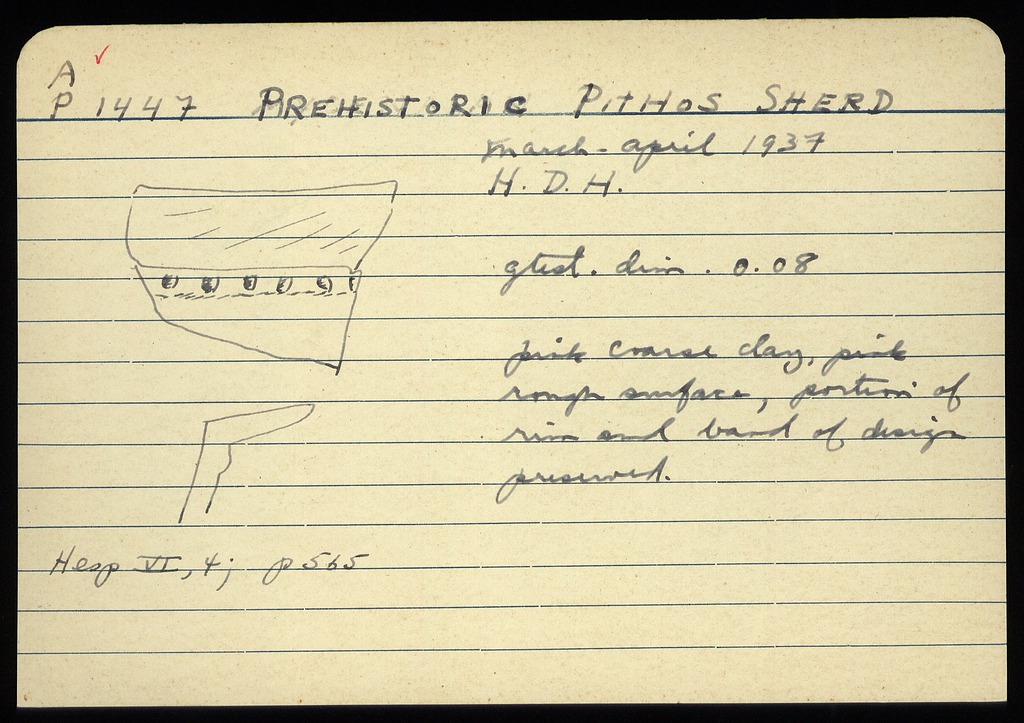 A
P 1447 PREHISTORIC PITHOS SHERD
March-April 1937
H. D. H.
gtest. dim. 0.08
pink coarse clay, pink
rough surface, portion of
rim and band of design
preserved.
Hesp VI, 4; p 565